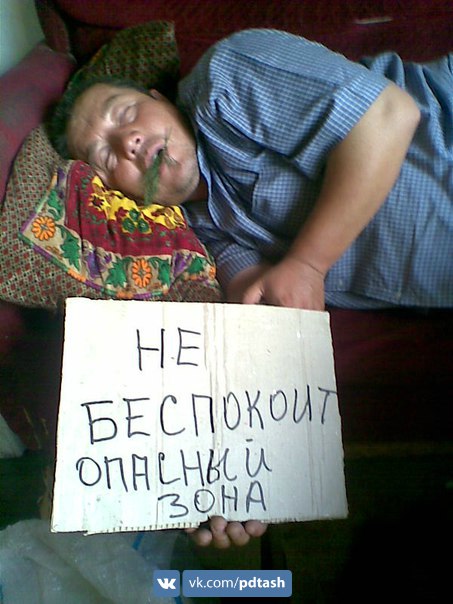 НЕ
БЕСПОКОИТ
ОПАСНЫЙ
ЗОНА
vk.com/pdtash